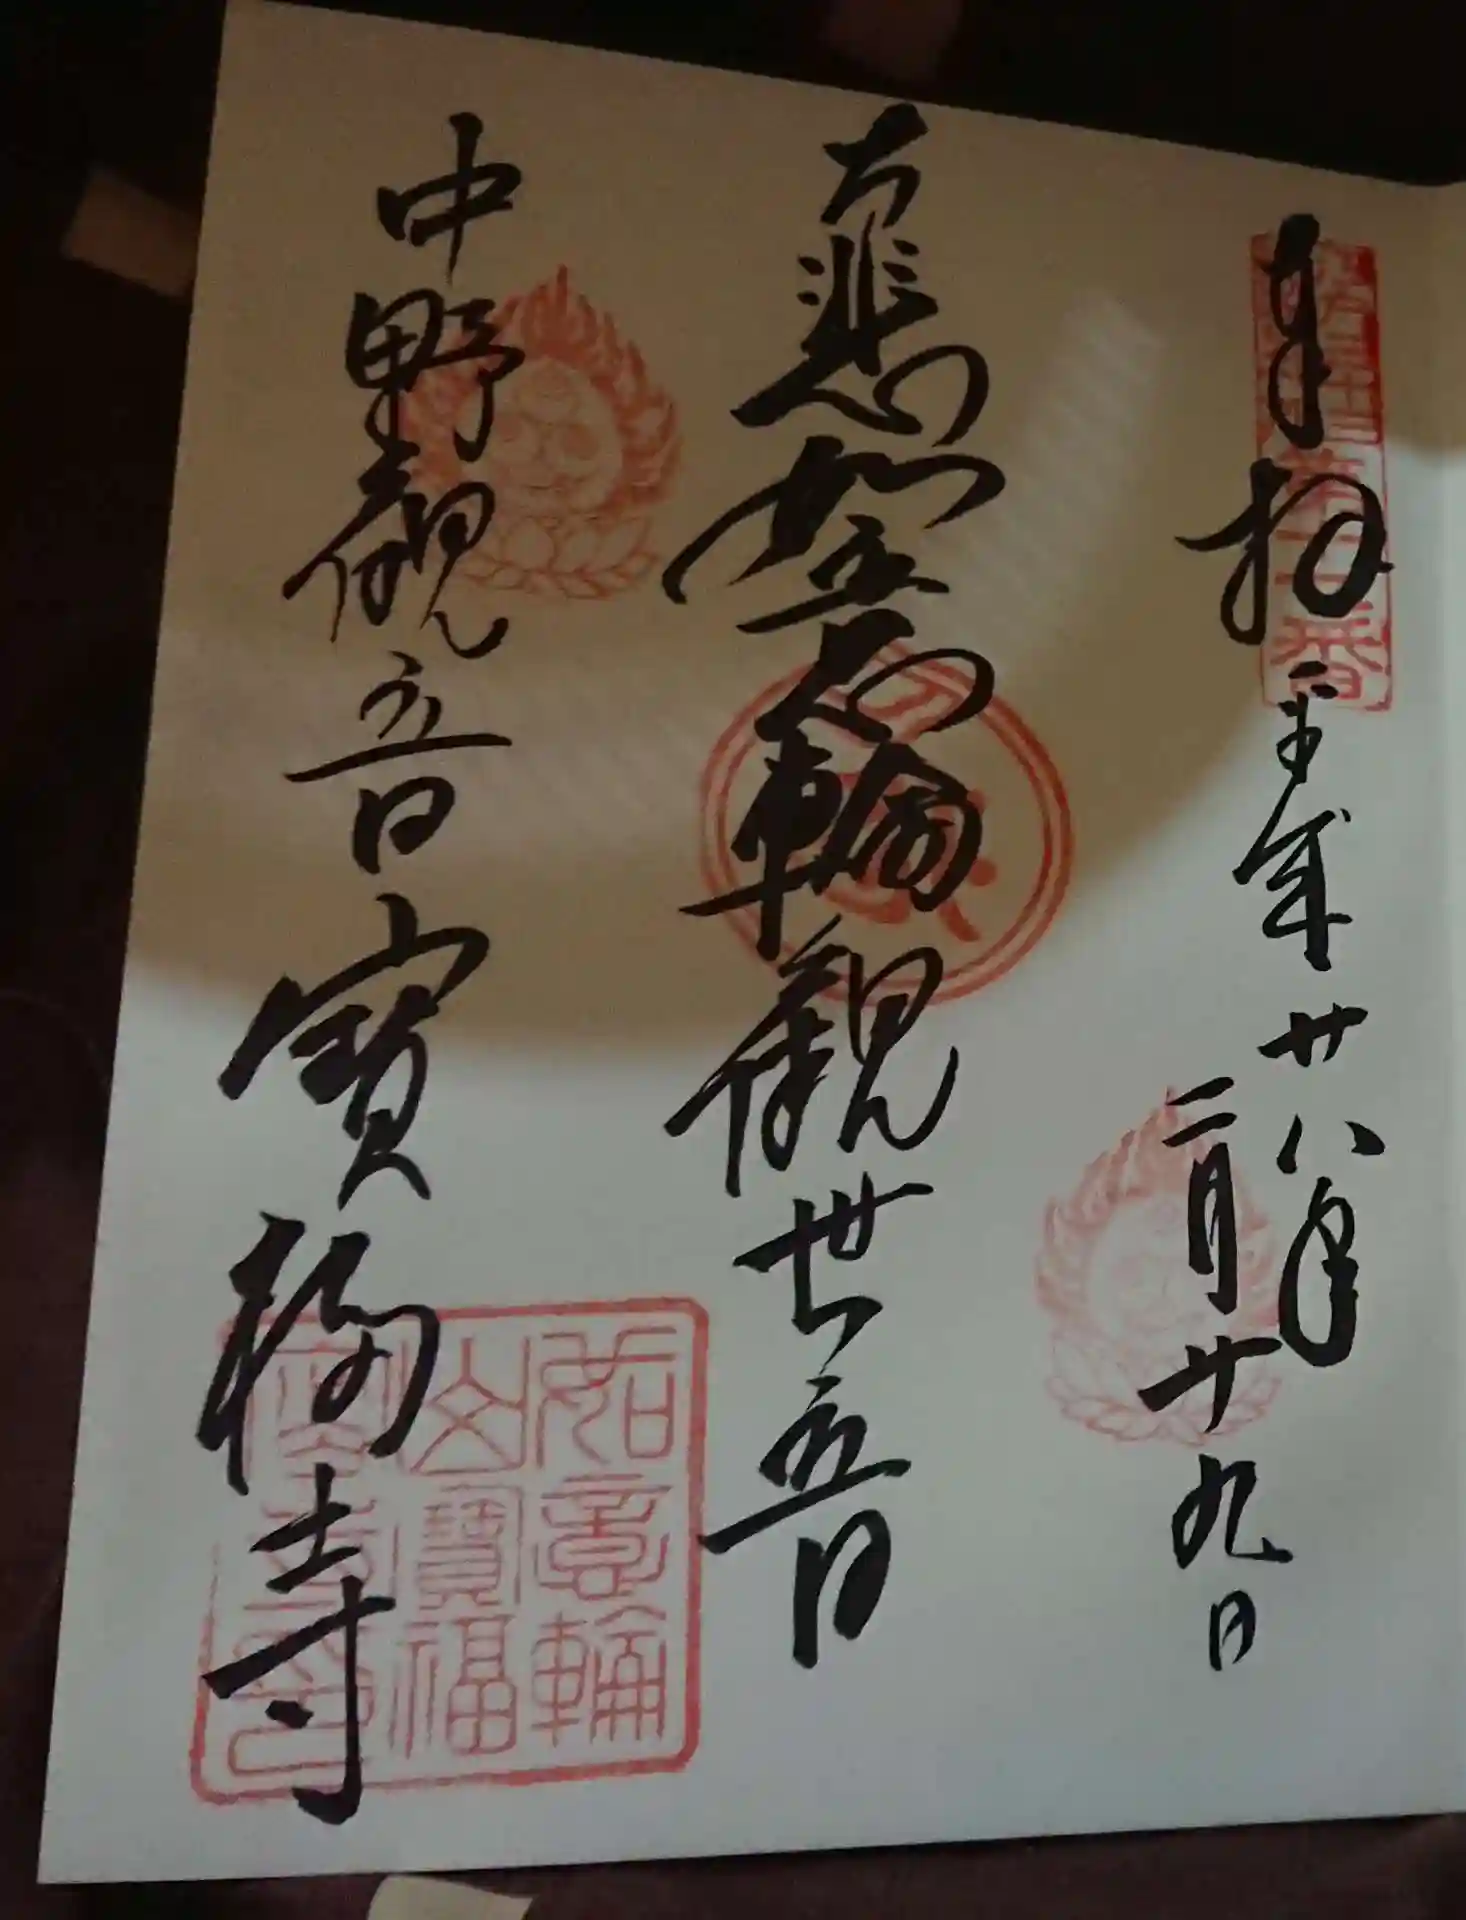 月拝
平成廿八年
二月廿九日
大悲如意輪観世音
中野観音寳福寺
如意輪
山寳福